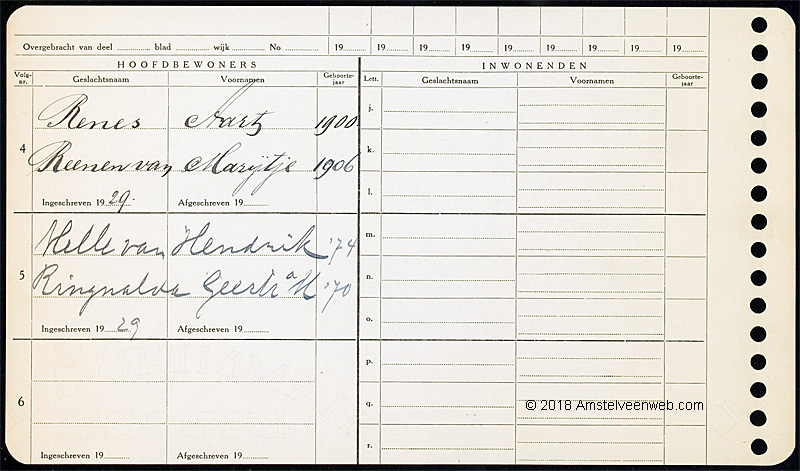 Overgebracht van deel ............ blad ............ wijk ............ No. ............ 19......... 19......... 19......... 19......... 19......... 19......... 19......... 19......... 19.........
HOOFDBEWONERS INWONENDEN
Volg-nr. Geslachtsnaam Voornamen Geboorte-jaar Lett. Geslachtsnaam Voornamen Geboorte-jaar
j.
Renes Aart 1900
4 k.
Reenen van Marijtje 1906
l.
Ingeschreven 19 29. Afgeschreven 19.........
m.
Helle van Hendrik '74
n.
5 Geertr a M '70
o.
Ingeschreven 19 29 Afgeschreven 19.........
p.
6 q.
© 2018 Amstelveenweb.com
r.
Ingeschreven 19......... Afgeschreven 19.........